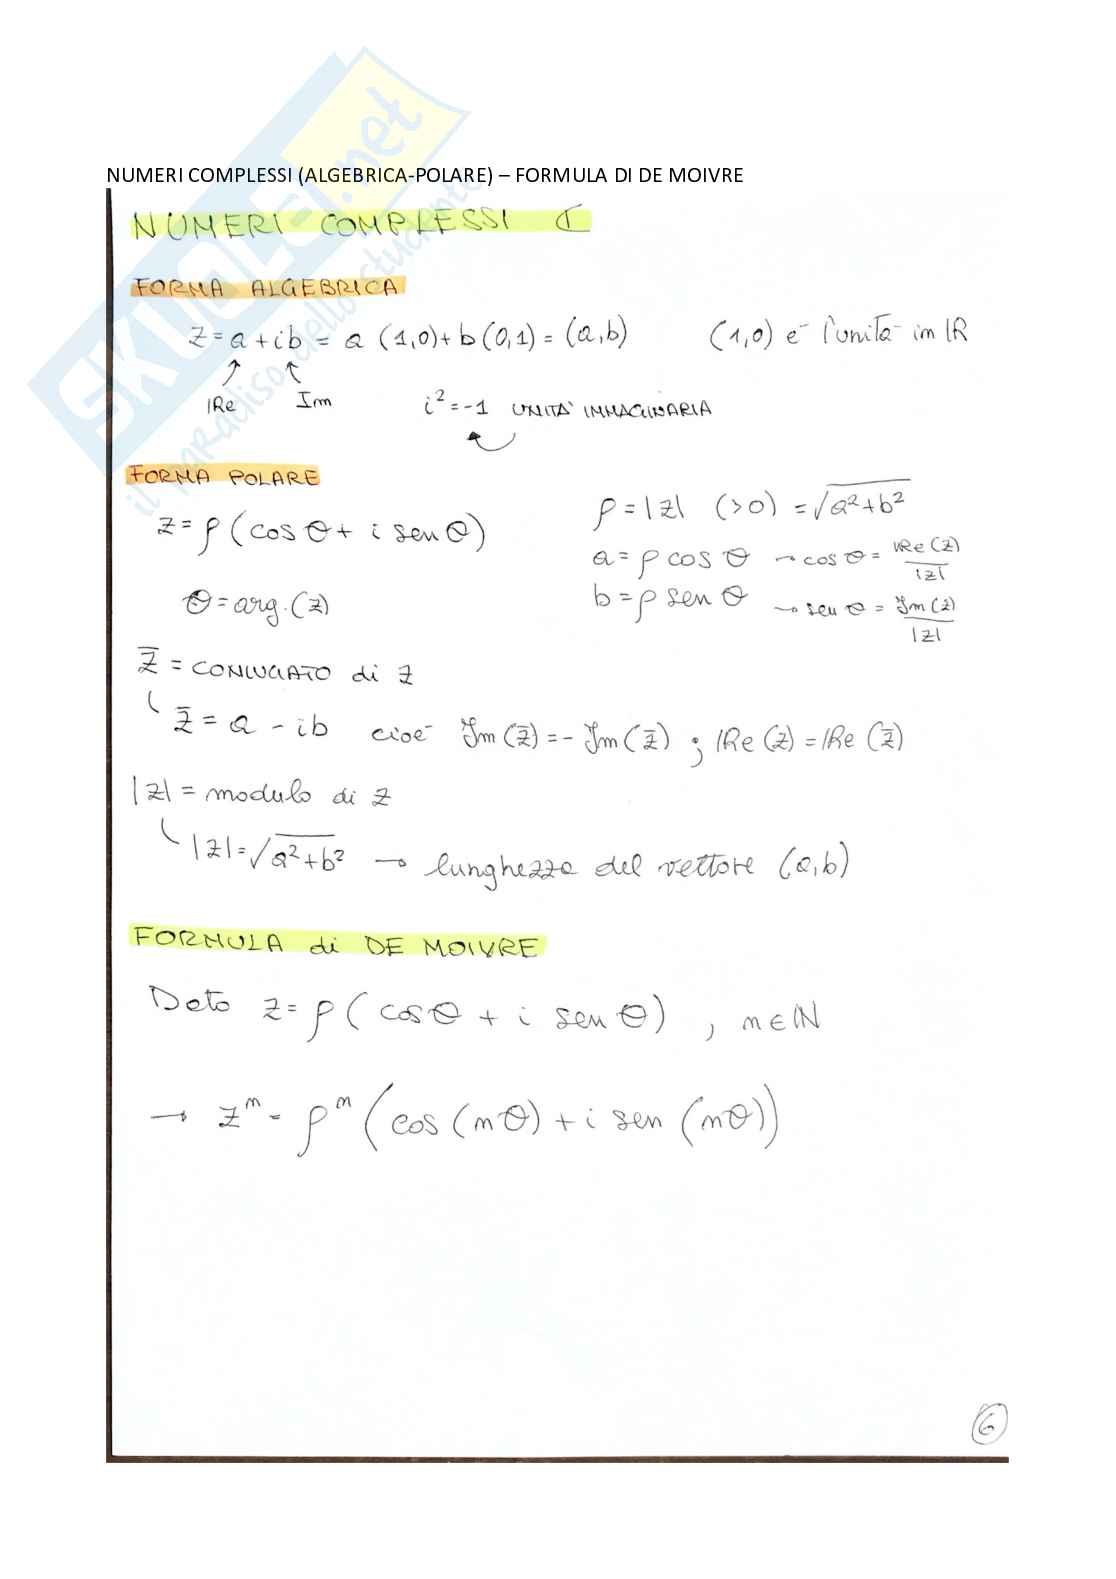 SKUOLA.net
il paradiso dello studente
NUMERI COMPLESSI (ALGEBRICA-POLARE) – FORMULA DI DE MOIVRE
NUMERI COMPLESSI ℂ
FORMA ALGEBRICA
z = a + ib = a (1,0) + b (0,1) = (a,b) (1,0) è l'unità in ℝ
ℝe Im
i² = -1 UNITÀ IMMAGINARIA
FORMA POLARE
z = ρ (cos θ + i sen θ)
θ = arg.(z)
ρ = |z| (>0) = √a²+b²
a = ρ cos θ → cos θ = ℝe(z)/|z|
b = ρ sen θ → sen θ = Im(z)/|z|
z̄ = CONIUGATO di z
z̄ = a - ib cioè Im(z̄) = - Im(z̄) ; ℝe(z) = ℝe(z̄)
|z| = modulo di z
|z| = √a²+b² → lunghezza del vettore (a,b)
FORMULA di DE MOIVRE
Dato z = ρ (cos θ + i sen θ) , n ∈ ℕ
→ zⁿ = ρⁿ (cos (nθ) + i sen (nθ))
6